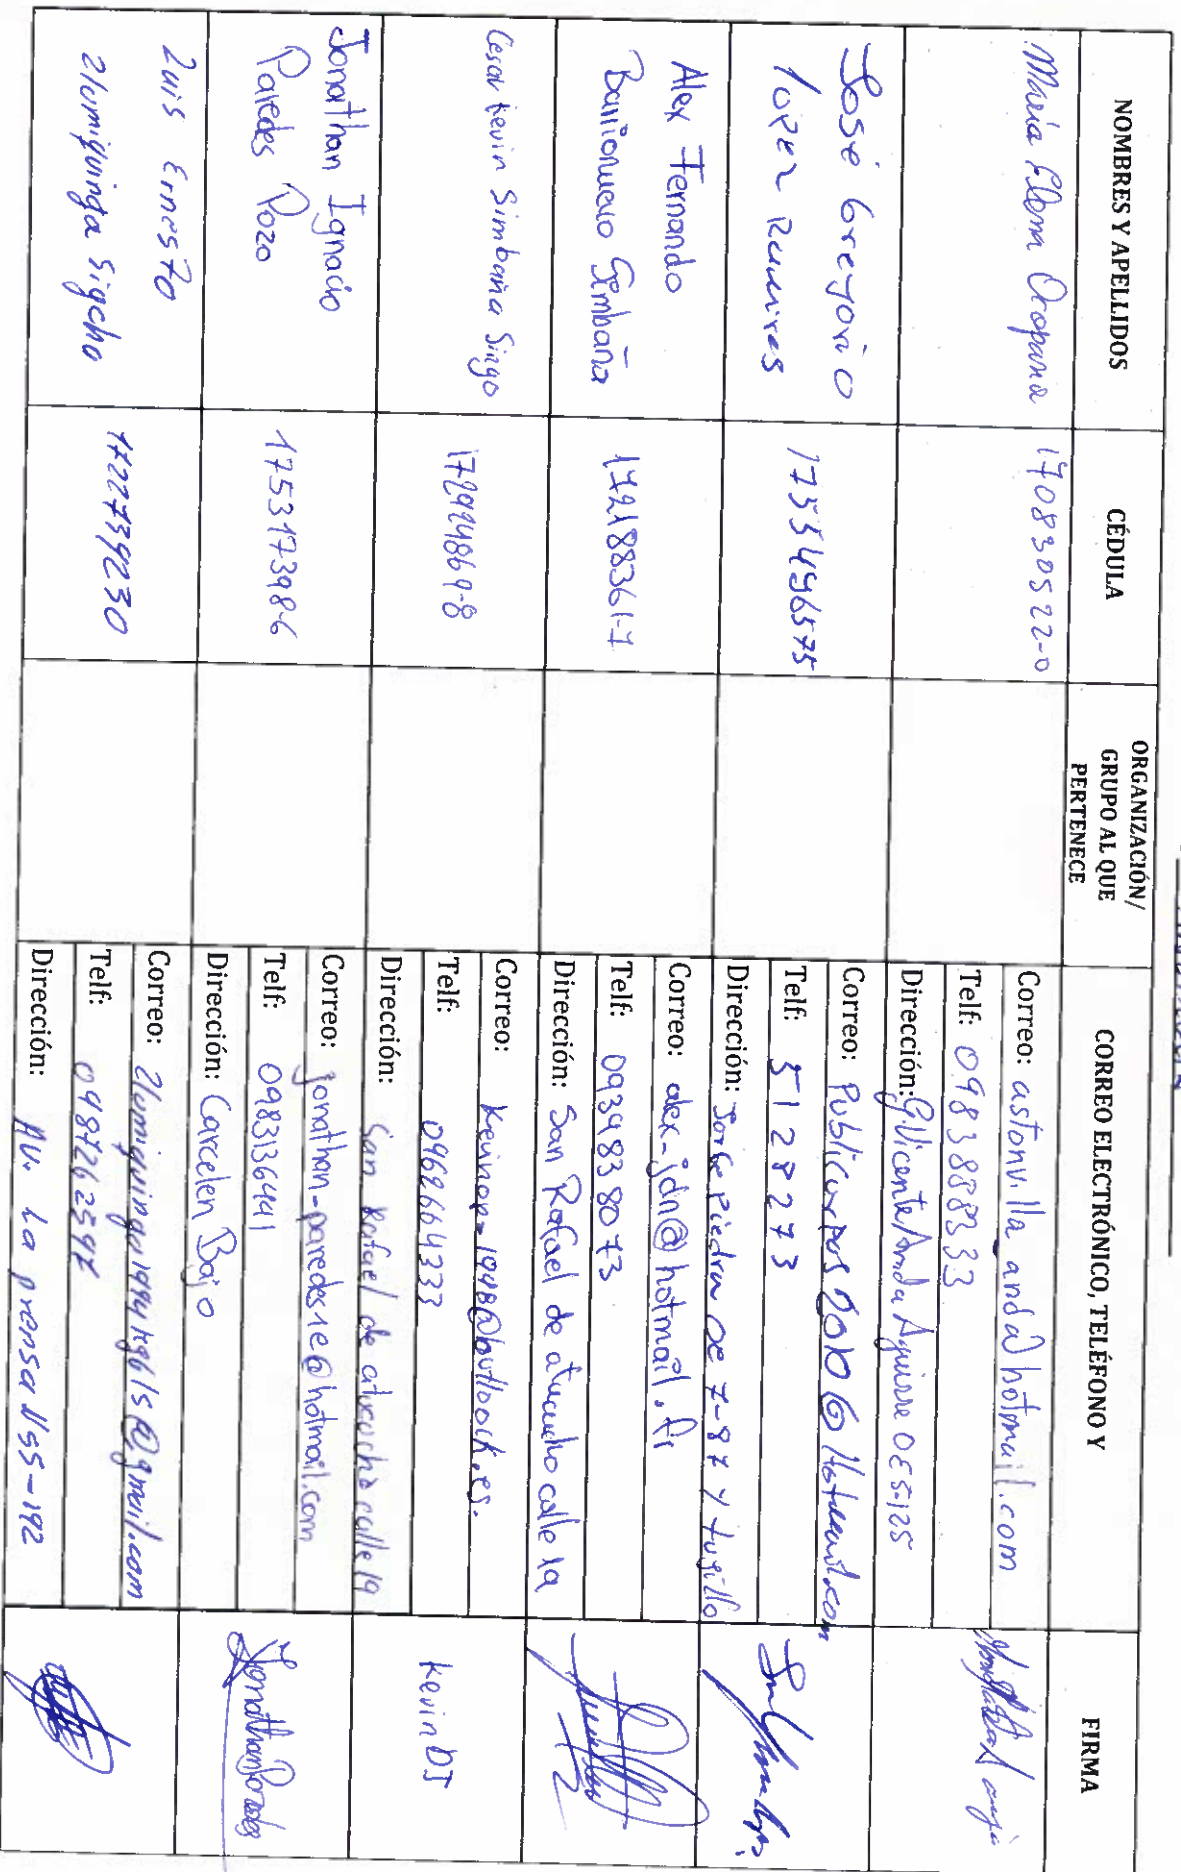 NOMBRES Y APELLIDOS
CÉDULA
ORGANIZACIÓN/
GRUPO AL QUE
PERTENECE
CORREO ELECTRÓNICO, TELÉFONO Y
FIRMA
María Elena Ocapana
170830522-0
Correo: astonvilla anda@hotmail.com
Telf: 0983888333
Dirección: G. Vicente Anda Aguirre OE5-125
José Gregorio
Yopez Ramires
1755496575
Correo: Publicorpus2010@Hotmail.com
Telf: 51 28 273
Dirección: Jorge piedra Oe 7-87 y tugillo
Alex Fernando
Barrionuevo Simbaña
172188361-7
Correo: alex-jdn@hotmail.fr
Telf: 0939838073
Dirección: San Rafael de atucucho calle 19
Cesar Kevin Simbaña Singo
172994869-8
Correo:
Telf: 0962664333
Dirección: San Rafael de atucucho calle 19
Kevin DJ
Jonathan Ignacio
Paredes Pozo
175317398-6
Correo: jonathan-paredesie@hotmail.com
Telf: 0983136441
Dirección: Carcelen Bajo
Jonathan Paredes
Luis Ernesto
Llumiquinga Sigcho
1722739230
Correo:
Telf: 0987262597
Dirección: AV. La prensa N55-192